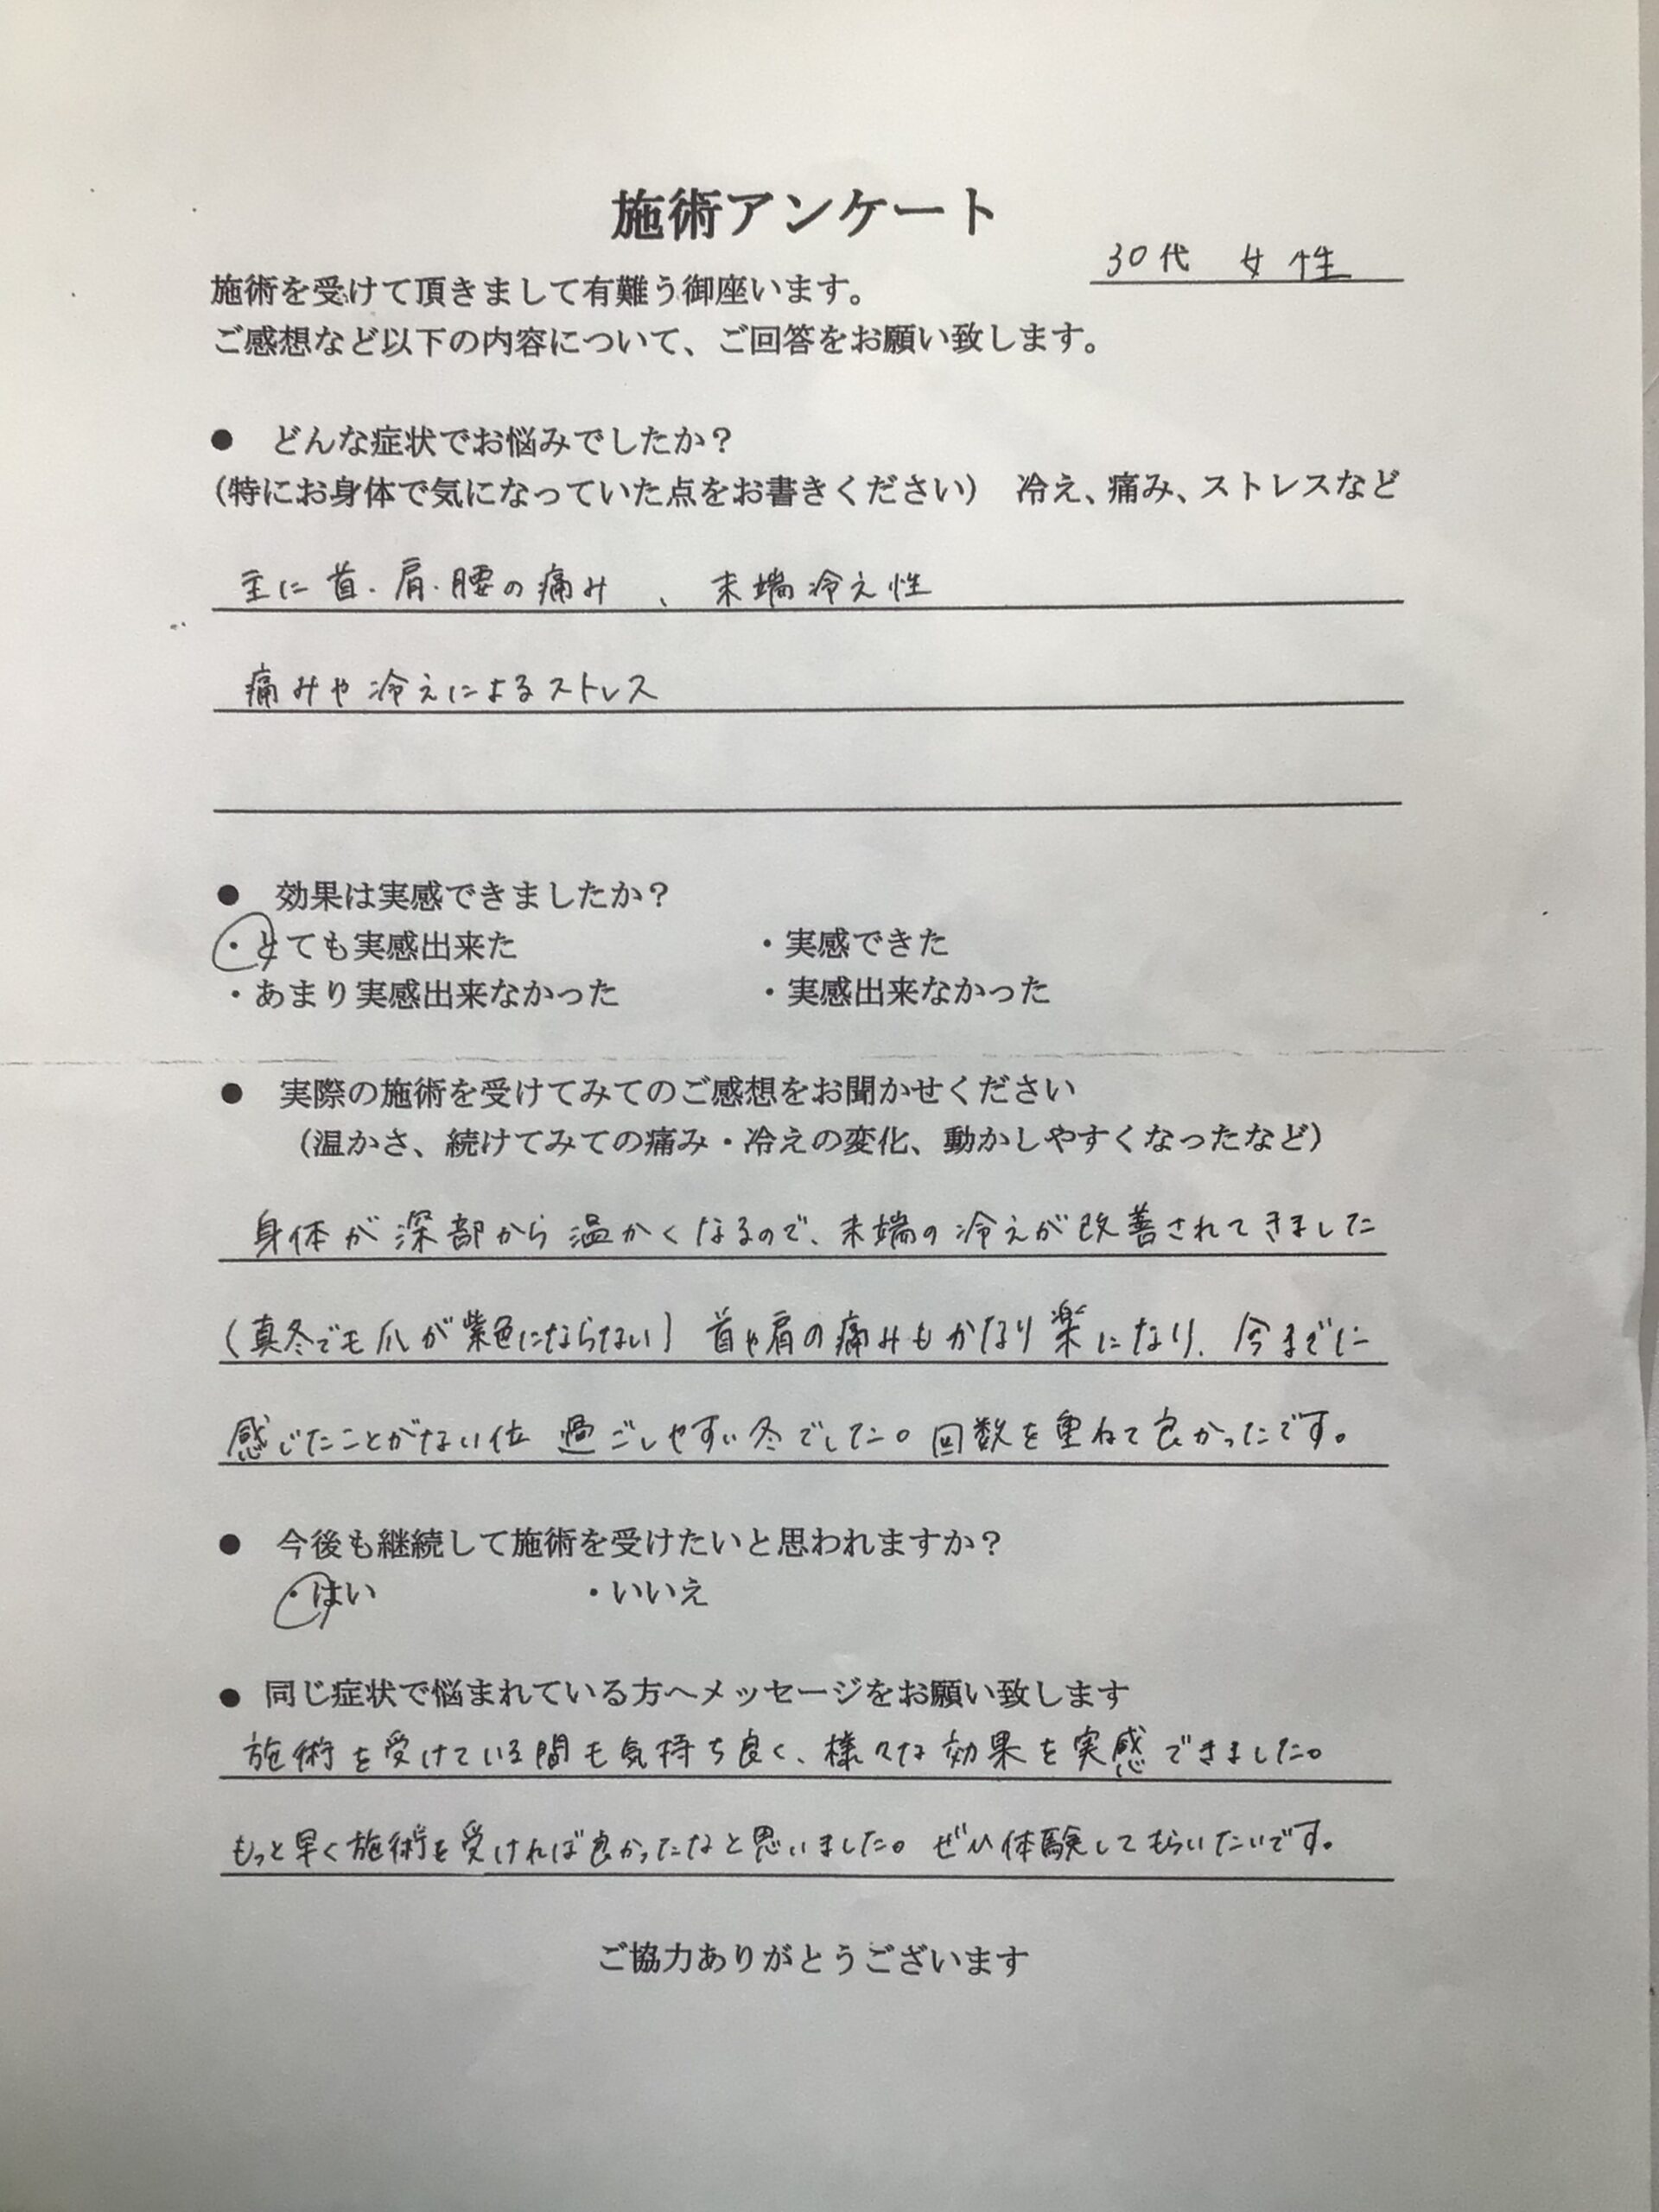 施術アンケート
30代 女性
施術を受けて頂きまして有難う御座います。
ご感想など以下の内容について、ご回答をお願い致します。
● どんな症状でお悩みでしたか？
（特にお身体で気になっていた点をお書きください） 冷え、痛み、ストレスなど
主に首・肩・腰の痛み、末端冷え性
痛みや冷えによるストレス
● 効果は実感できましたか？
・とても実感出来た ・実感できた
・あまり実感出来なかった ・実感出来なかった
● 実際の施術を受けてみてのご感想をお聞かせください
（温かさ、続けてみての痛み・冷えの変化、動かしやすくなったなど）
身体が深部から温かくなるので、末端の冷えが改善されてきました
（真冬でも爪が紫色にならない）首や肩の痛みもかなり楽になり、今までに
感じたことがない位 過ごしやすい冬でした。回数を重ねて良かったです。
● 今後も継続して施術を受けたいと思われますか？
・はい ・いいえ
● 同じ症状で悩まれている方へメッセージをお願い致します
施術を受けている間も気持ち良く、様々な効果を実感できました。
もっと早く施術を受ければ良かったなと思いました。ぜひ体験してもらいたいです。
ご協力ありがとうございます